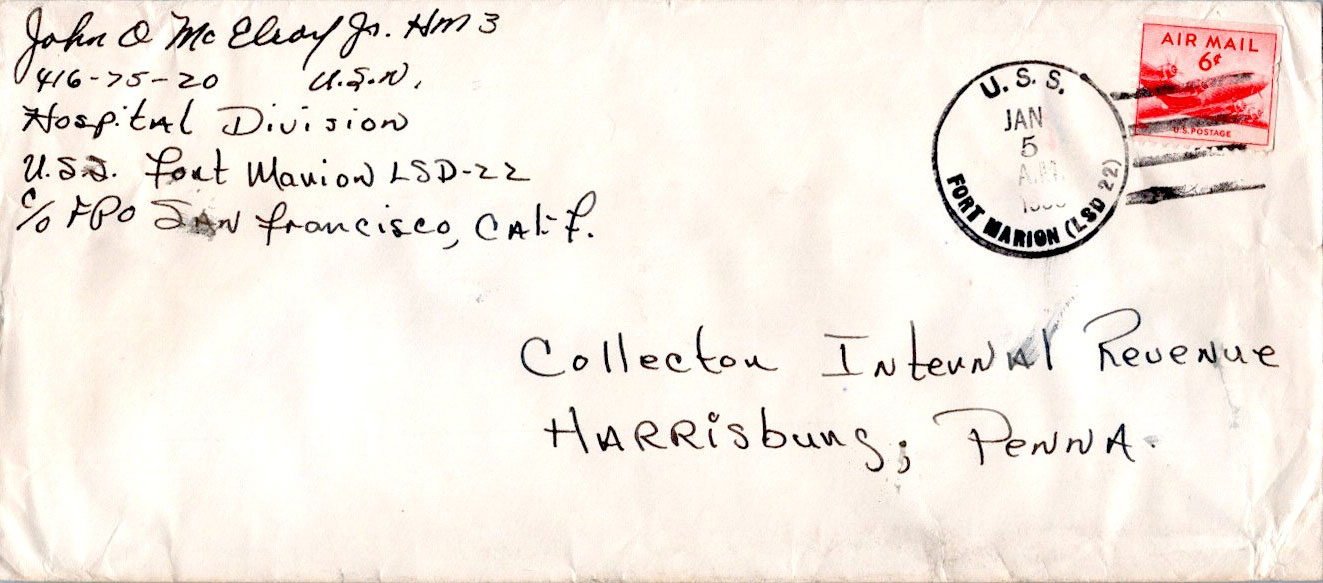 John O McElroy Jr. HM3
416-75-20 U.S.N.
Hospital Division
U.S.S. Fort Marion LSD-22
c/o FPO San Francisco, Calif.
U.S.S.
JAN
5
A.M.
FORT MARION (LSD 22)
AIR MAIL
6¢
U.S. POSTAGE
Collector Internal Revenue
HARRisburg, PENNA.